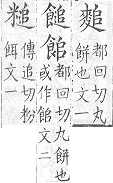 都回切丸
餅也文一
䭔
館
都回切丸餅也
或作館文二
傳追切粉
餌文一